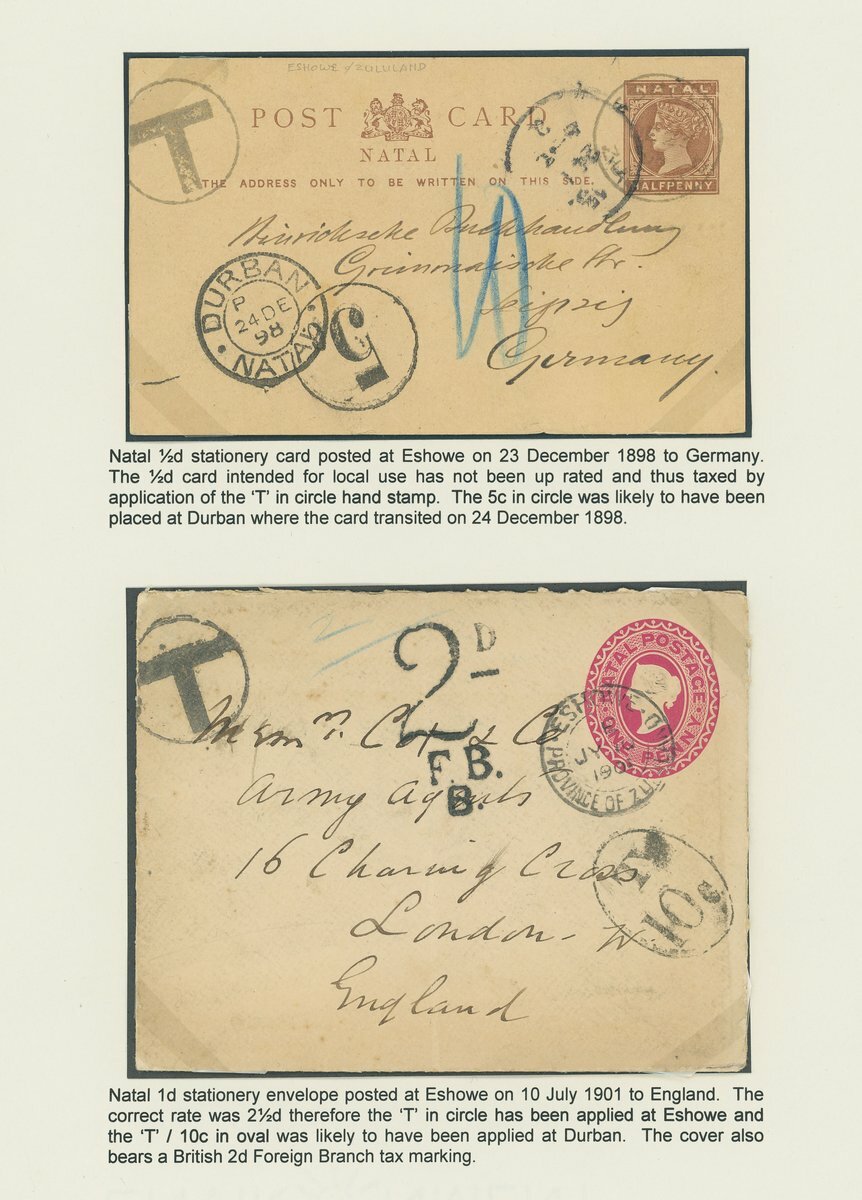 ESHOWE of ZULULAND
T
POST CARD
NATAL
NATAL
HALFPENNY
THE ADDRESS ONLY TO BE WRITTEN ON THIS SIDE.
Hinrichsche Buchhandlung
Grimmaische Str.
Leipzig
Germany.
DURBAN
P
24 DE
98
NATAL
5
Natal ½d stationery card posted at Eshowe on 23 December 1898 to Germany.
The ½d card intended for local use has not been up rated and thus taxed by
application of the ‘T’ in circle hand stamp. The 5c in circle was likely to have been
placed at Durban where the card transited on 24 December 1898.
T
2
2D
F.B.
B.
NATAL POSTAGE
ONE PENNY
ESHOWE
JY
190
PROVINCE OF ZULU
Cox & Co
Army Agents
16 Charing Cross
London - W.
England
T
10c
Natal 1d stationery envelope posted at Eshowe on 10 July 1901 to England. The
correct rate was 2½d therefore the ‘T’ in circle has been applied at Eshowe and
the ‘T’ / 10c in oval was likely to have been applied at Durban. The cover also
bears a British 2d Foreign Branch tax marking.